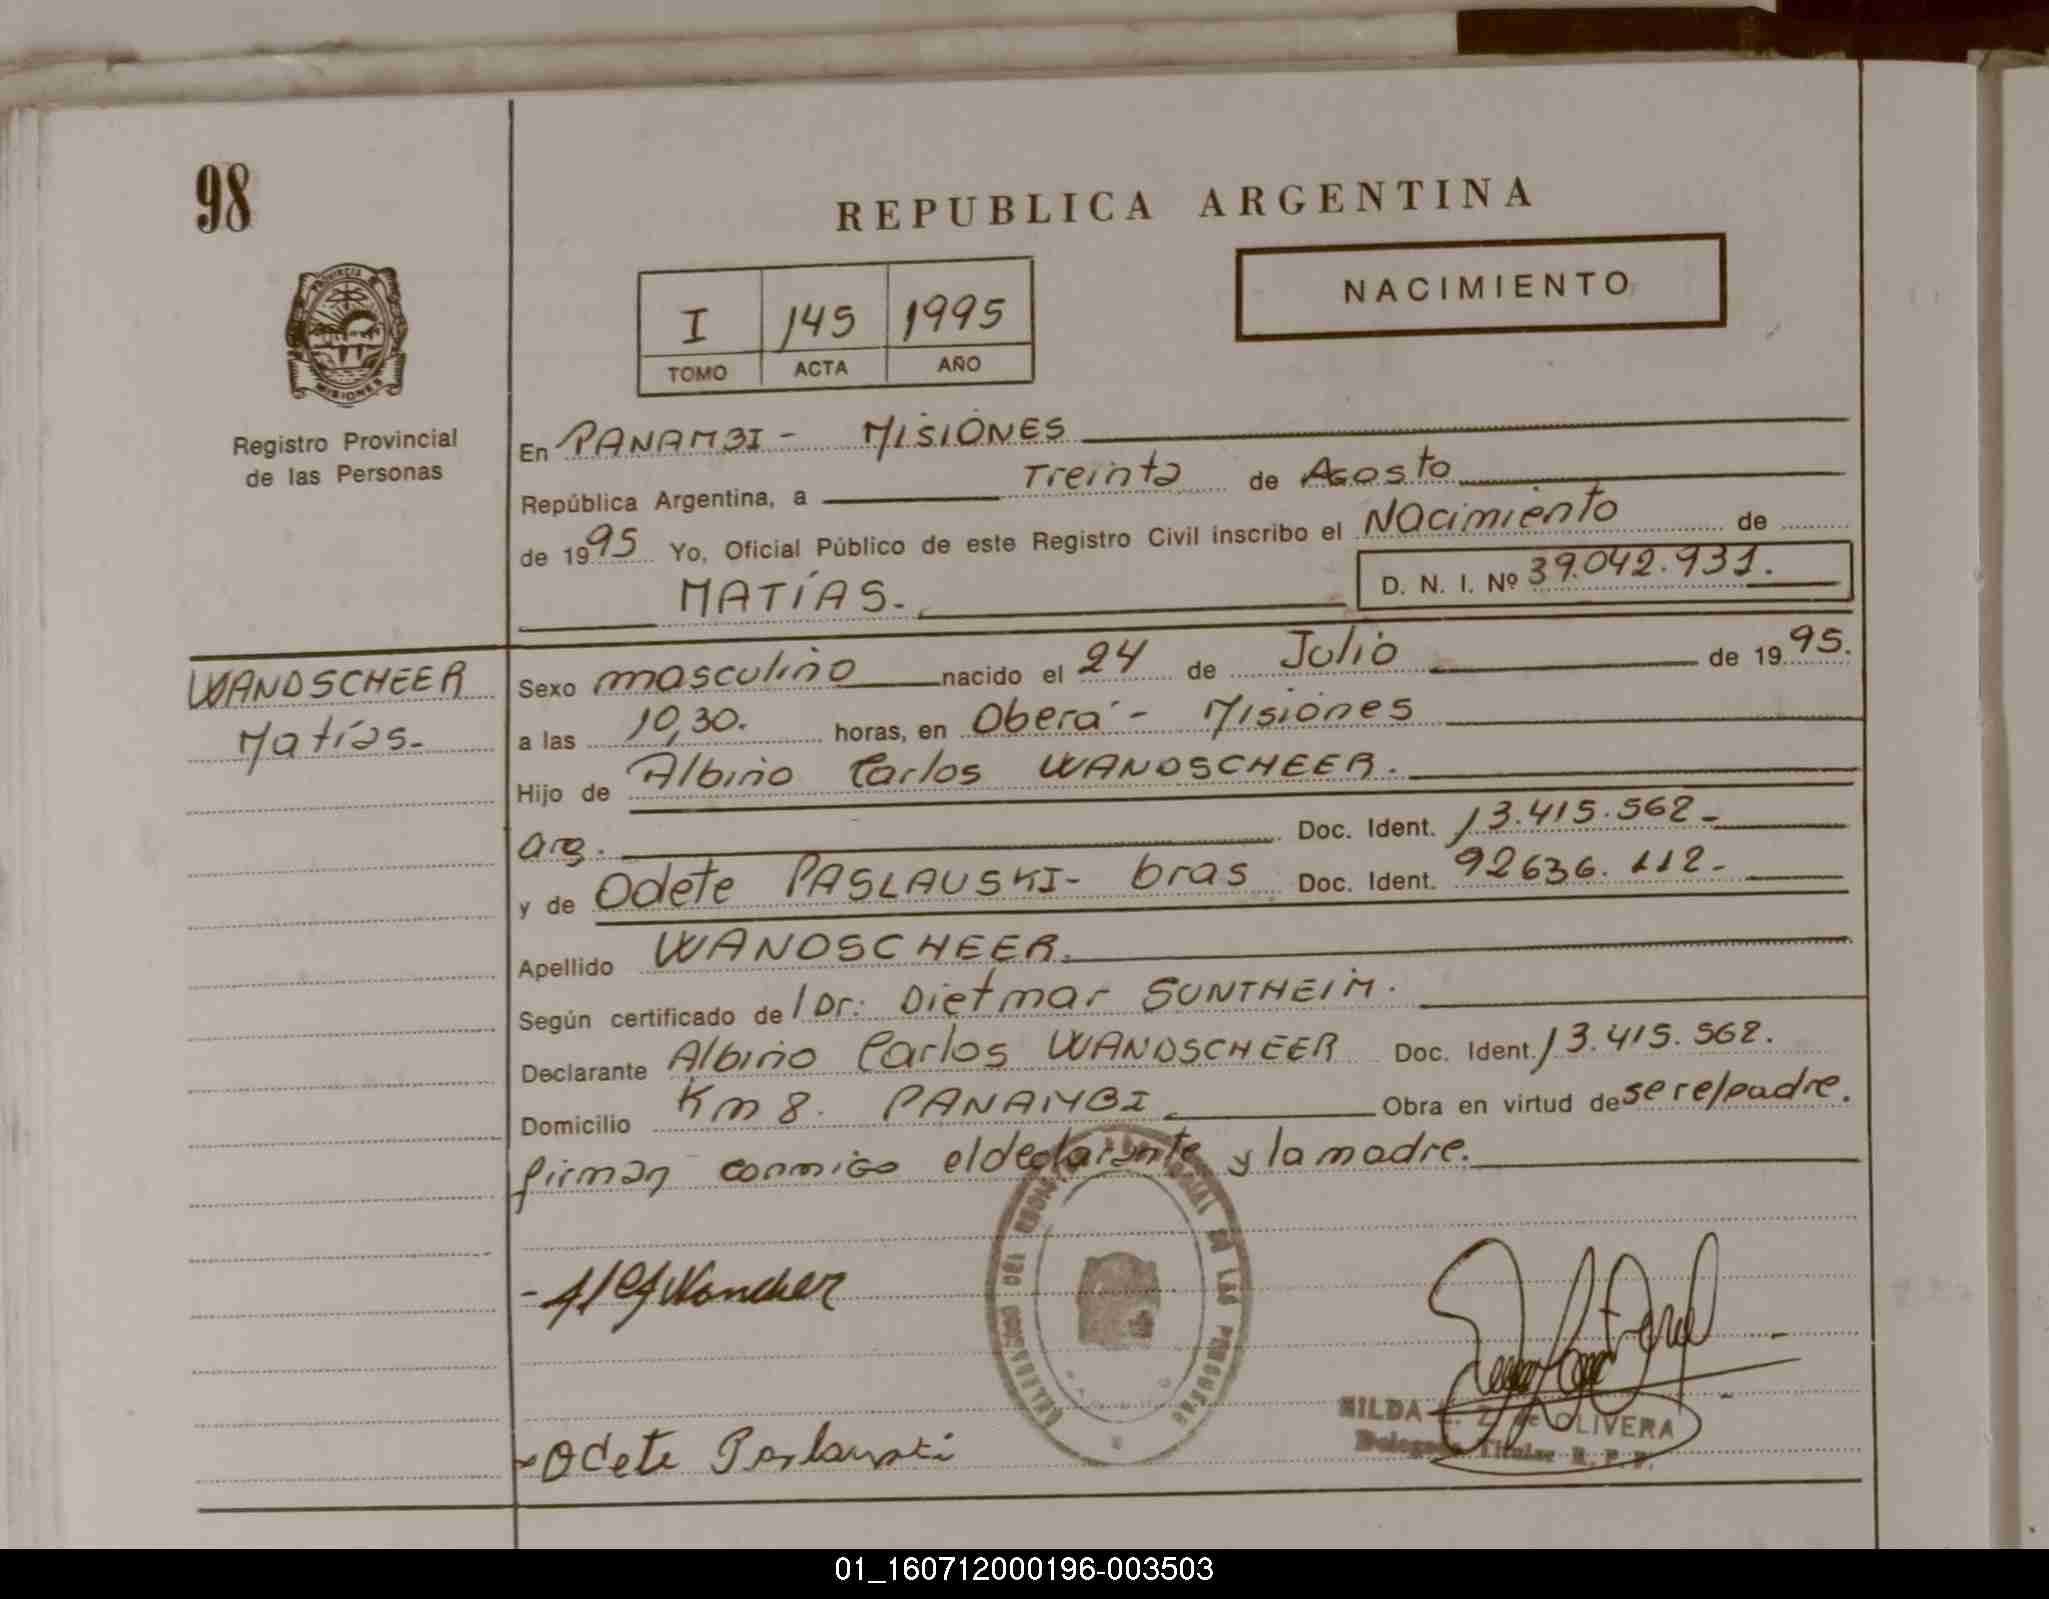 98
REPUBLICA ARGENTINA
NACIMIENTO
I 145 1995
TOMO ACTA AÑO
PROVINCIA
MISIONES
Registro Provincial
de las Personas
En PANAMBI - MISIONES
República Argentina, a Treinta de Agosto
de 1995 Yo, Oficial Público de este Registro Civil inscribo el Nacimiento de
MATÍAS.-
D. N. I. Nº 39.042.931.
WANDSCHEER
Matías.-
Sexo masculino nacido el 24 de Julio de 1995.
a las 10,30. horas, en Oberá - Misiones
Hijo de Albino Carlos WANDSCHEER.
arg. Doc. Ident. 13.415.562-
y de Odete PASLAUSKI- bras Doc. Ident. 92636.112-
Apellido WANDSCHEER.
Según certificado de / Dr: Dietmar SONTHEIM.
Declarante Albino Carlos WANDSCHEER Doc. Ident. 13.415.562.
Domicilio Km 8. PANAMBI Obra en virtud de ser el padre.
firman conmigo el declarante y la madre.
DELEGACION DEL REGISTRO PROVINCIAL DE LAS PERSONAS
- Odete Paslauski
HILDA Z. de OLIVERA
Delegada Titular R. P. P.
01_160712000196-003503